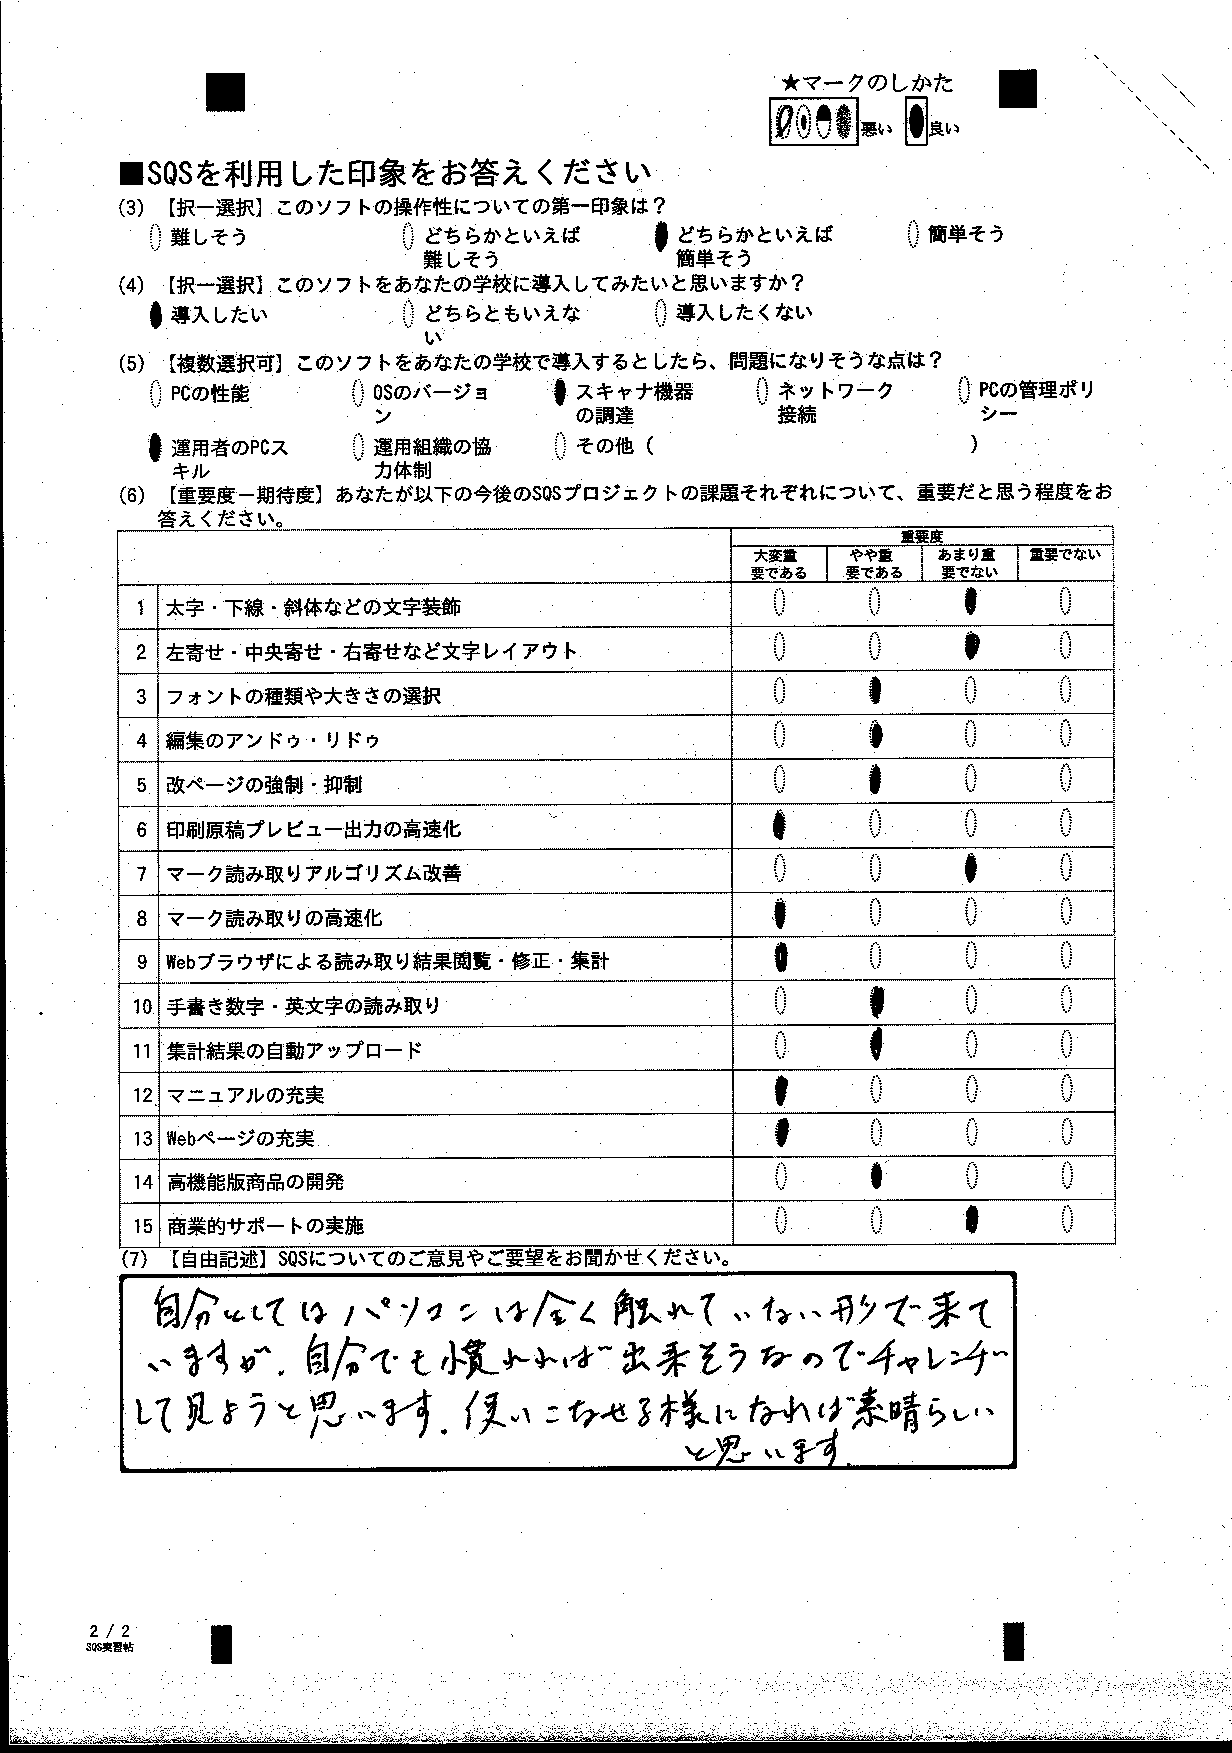 ★マークのしかた
悪い 良い
■SQSを利用した印象をお答えください
(3) 【択一選択】このソフトの操作性についての第一印象は？
難しそう どちらかといえば どちらかといえば 簡単そう
難しそう 簡単そう
(4) 【択一選択】このソフトをあなたの学校に導入してみたいと思いますか？
導入したい どちらともいえな 導入したくない
い
(5) 【複数選択可】このソフトをあなたの学校で導入するとしたら、問題になりそうな点は？
PCの性能 OSのバージョ スキャナ機器 ネットワーク PCの管理ポリ
ン の調達 接続 シー
運用者のPCス 運用組織の協 その他（ ）
キル 力体制
(6) 【重要度－期待度】あなたが以下の今後のSQSプロジェクトの課題それぞれについて、重要だと思う程度をお
答えください。
重要度
大変重 やや重 あまり重 重要でない
要である 要である 要でない
1 太字・下線・斜体などの文字装飾
2 左寄せ・中央寄せ・右寄せなど文字レイアウト
3 フォントの種類や大きさの選択
4 編集のアンドゥ・リドゥ
5 改ページの強制・抑制
6 印刷原稿プレビュー出力の高速化
7 マーク読み取りアルゴリズム改善
8 マーク読み取りの高速化
9 Webブラウザによる読み取り結果閲覧・修正・集計
10 手書き数字・英文字の読み取り
11 集計結果の自動アップロード
12 マニュアルの充実
13 Webページの充実
14 高機能版商品の開発
15 商業的サポートの実施
(7) 【自由記述】SQSについてのご意見やご要望をお聞かせください。
自分としてはパソコンは全く触れていない形で来て
いますが、自分でも慣れれば出来そうなのでチャレンヂ
して見ようと思います。使いこなせる様になれば素晴らしい
と思います。
2 / 2
SQS実習帖